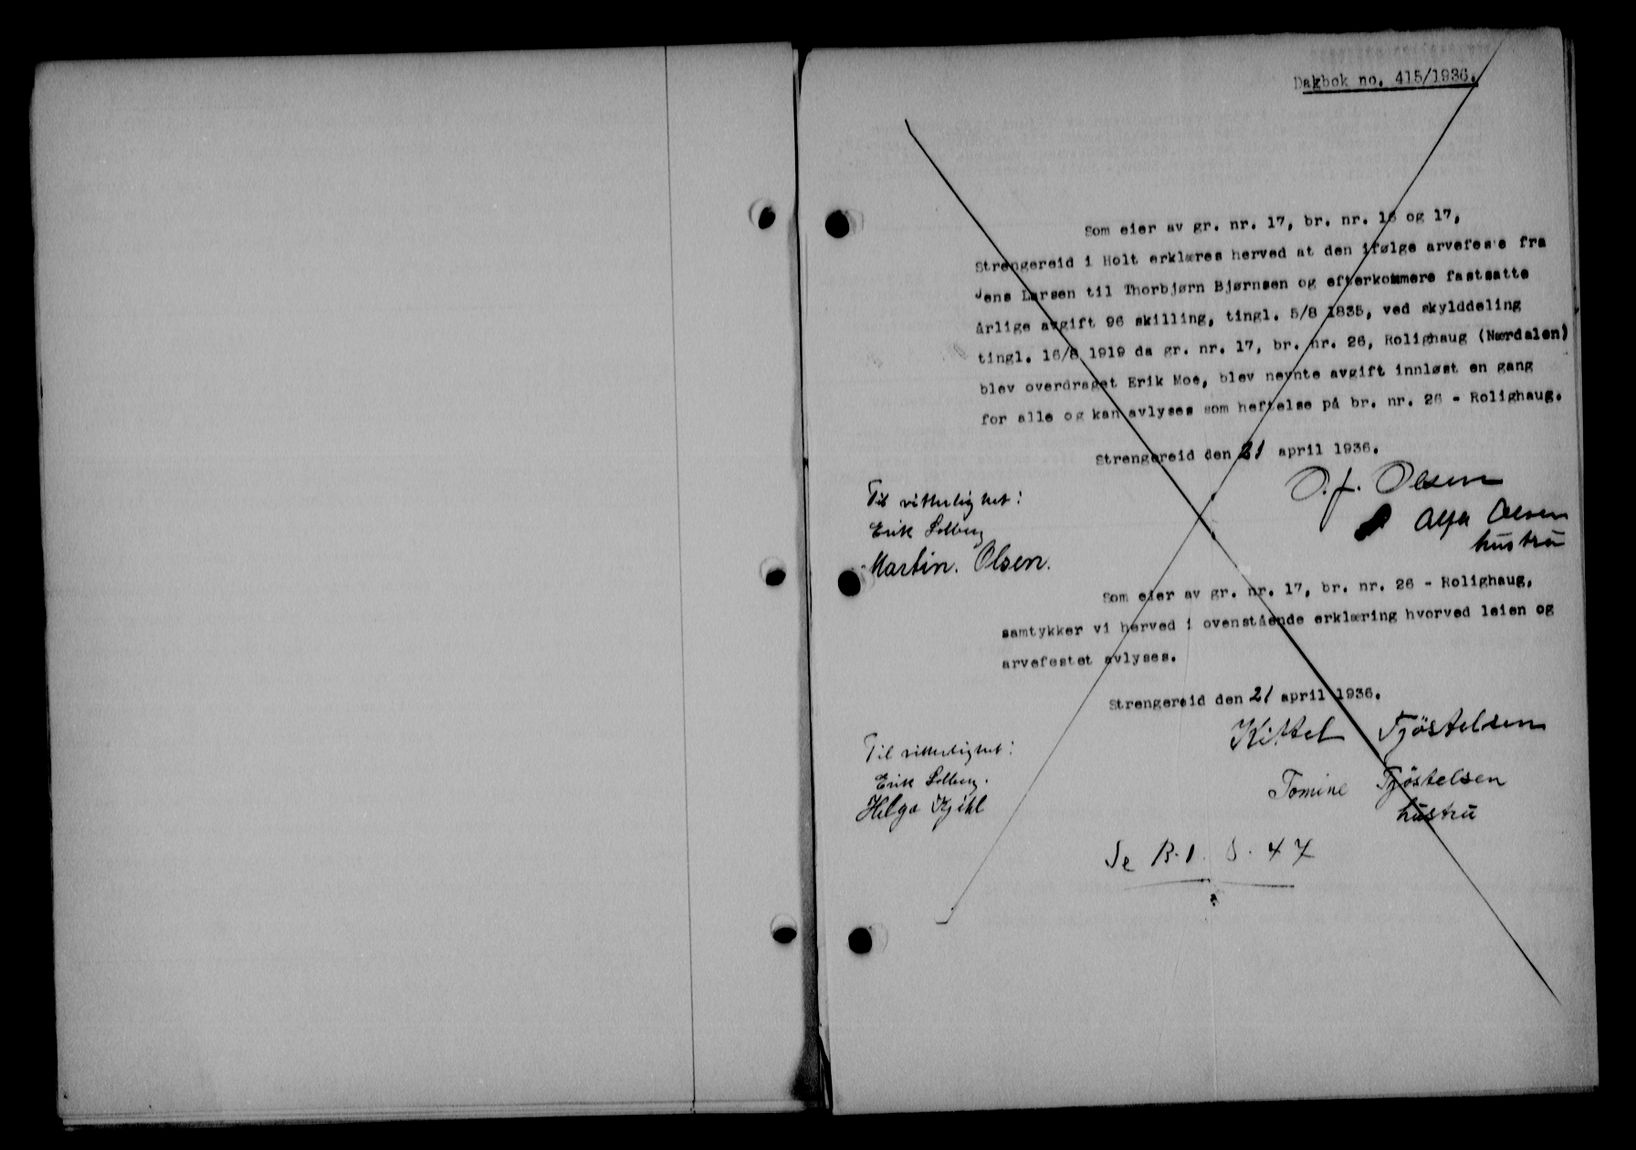 Dagbok no. 415/1936.
Som eier av gr. nr. 17, br. nr. 16 og 17,
Strengereid i Holt erklæres herved at den ifølge arvefeste fra
Jens Larsen til Thorbjørn Bjørnsen og efterkommere fastsatte
årlige avgift 96 skilling, tingl. 5/8 1835, ved skylddeling
tingl. 16/8 1919 da gr. nr. 17, br. nr. 26, Rolighaug (Nærdalen)
blev overdraget Erik Moe, blev nevnte avgift innløst en gang
for alle og kan avlyses som heftelse på br. nr. 26 - Rolighaug.
Strengereid den 21 april 1936.
O. J. Olsen
Til vitterlighet:
Erik Solberg
Olsen
hustru
Martin. Olsen.
Som eier av gr. nr. 17, br. nr. 26 - Rolighaug,
samtykker vi herved i ovenstående erklæring hvorved leien og
arvefestet avlyses.
Strengereid den 21 april 1936.
Kittel Tjöstelsen
Til vitterlighet:
Erik Solberg.
Tomine Tjöstelsen
hustru
Helga
Se B. 1. S. 47